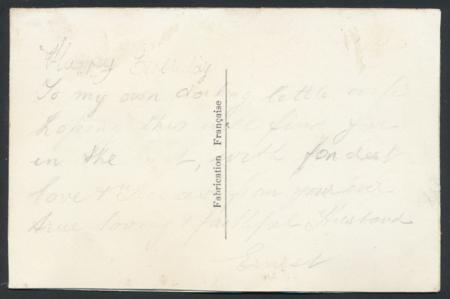 Happy Birthday
To my own darling little wife
hoping this will find you
in the with fondest
love & from your ever
true loving & faithful Husband
Ernest
Fabrication Française